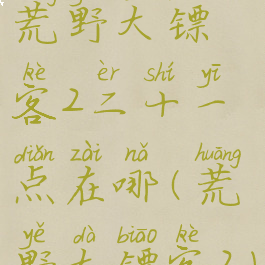 荒野大镖
kè èr shí yī
客2二十一
diǎn zài nǎ huāng
点在哪(荒
yě dà biāo kè
野大镖客2)